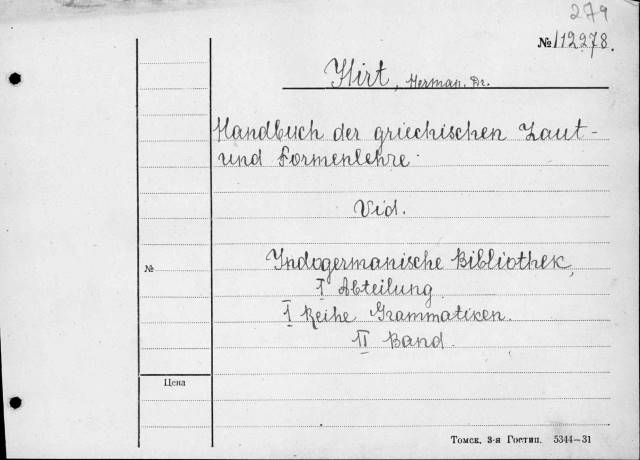 279
№ 112278.
Hirt, Herman. Dr.
Handbuch der griechischen Laut-
und Formenlehre.
Vid.
Indogermanische Bibliothek,
I Abteilung
I Reihe Grammatiken.
II Band.
№
Цена
Томск. 3-я Гостип. 5344—31